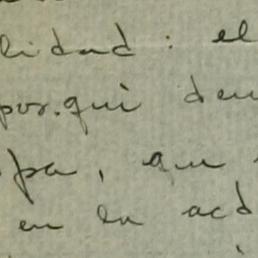 lidad: el
por.qui den
pa, que
en la acd